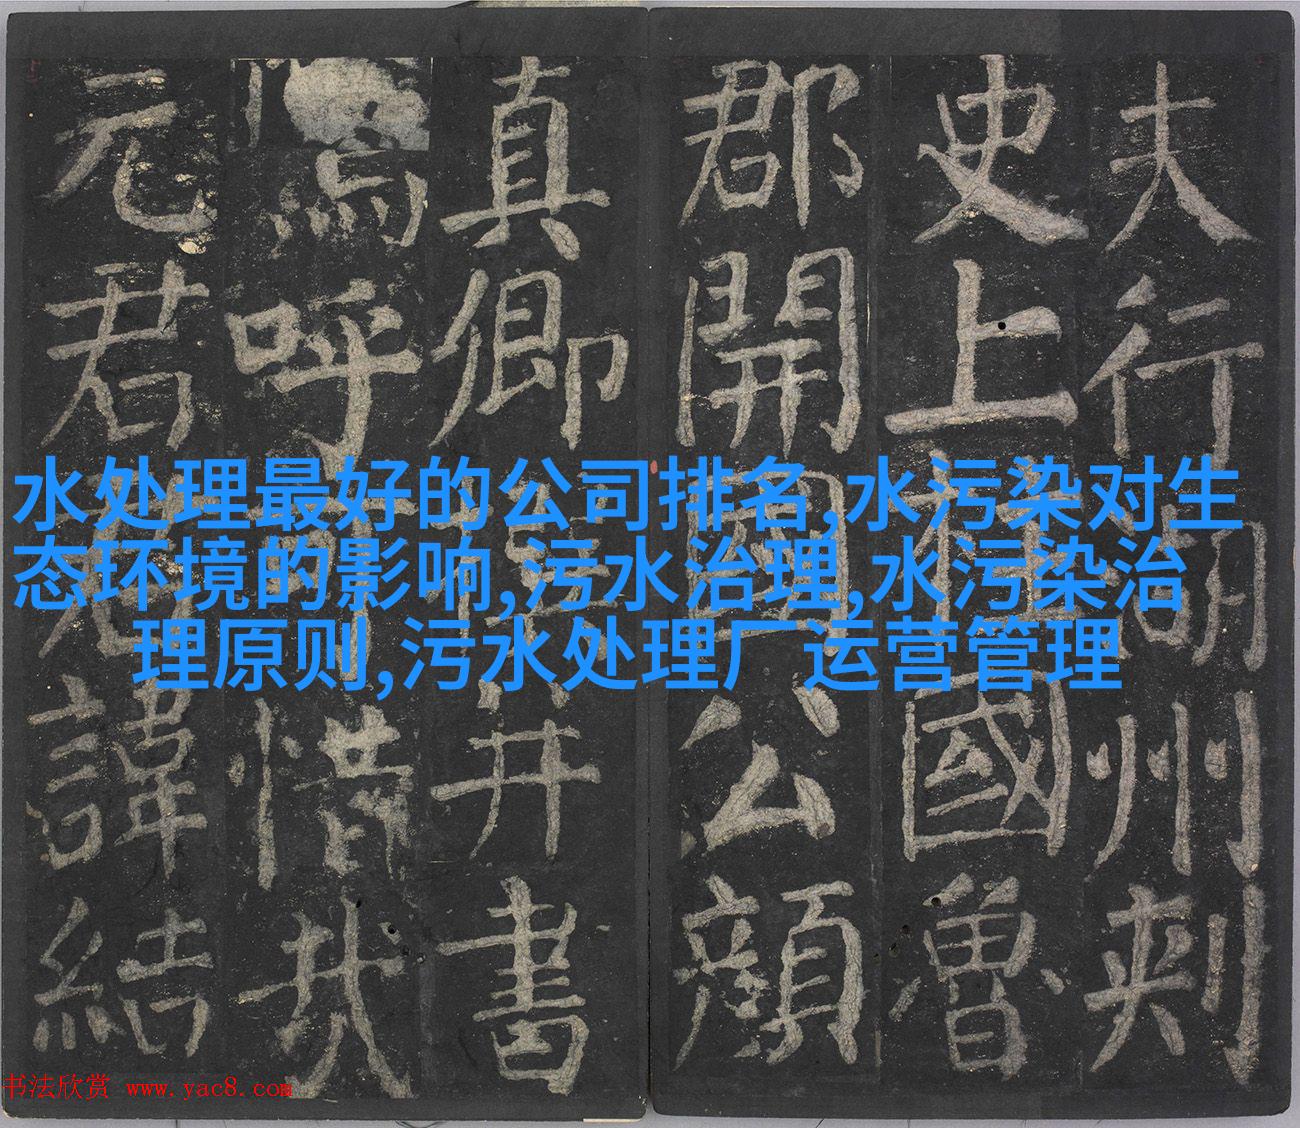 夫行湖州刾
史上柱國魯
郡開國公顔
真卿并書
嗚呼惜哉
元君諱結
水处理最好的公司排名,水污染对生
态环境的影响,污水治理,水污染治
理原则,污水处理厂运营管理
书法欣赏 www.yac8.com